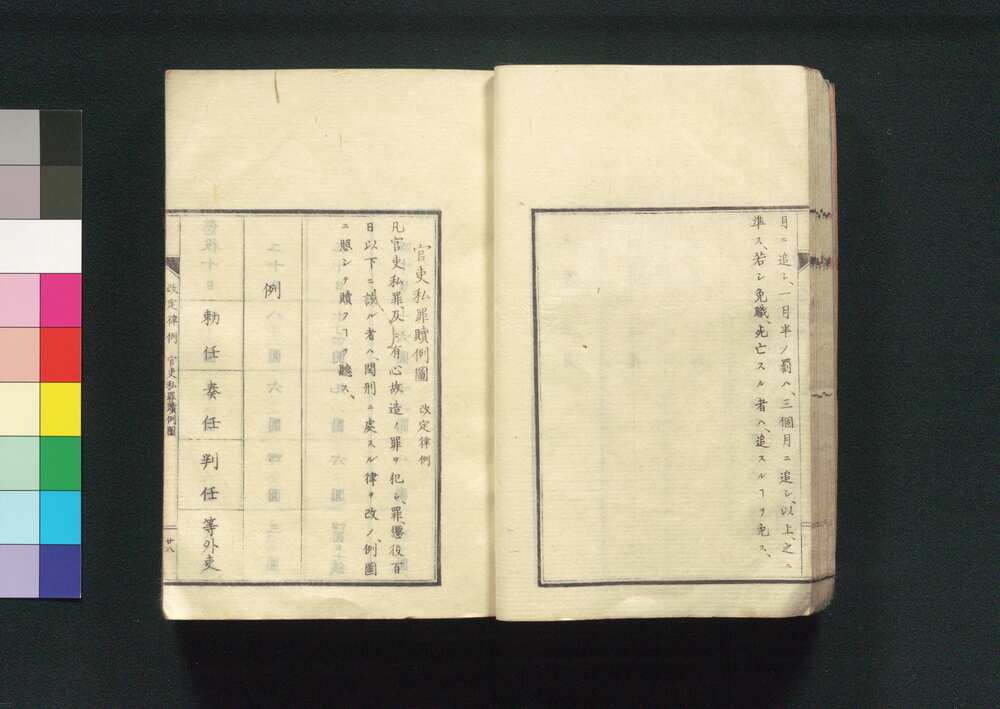 月ニ追シ、一月半ノ罰ハ、三個月ニ追シ、以上、之ニ
準ス、若シ免職死亡スル者ハ、追スルヿヲ免ス、
官吏私罪贖例圖 改定律例
凡官吏私罪、及ヒ有心故造ノ罪ヲ犯シ、罪、懲役百
日以下ニ該ル者ハ、閏刑ニ處スル律ヲ改メ、例圖
ニ照シヲ贖フヿヲ聽ス、
例
勅任
奏任
判任
等外吏
改定律例 官吏私罪贖例圖
廿八